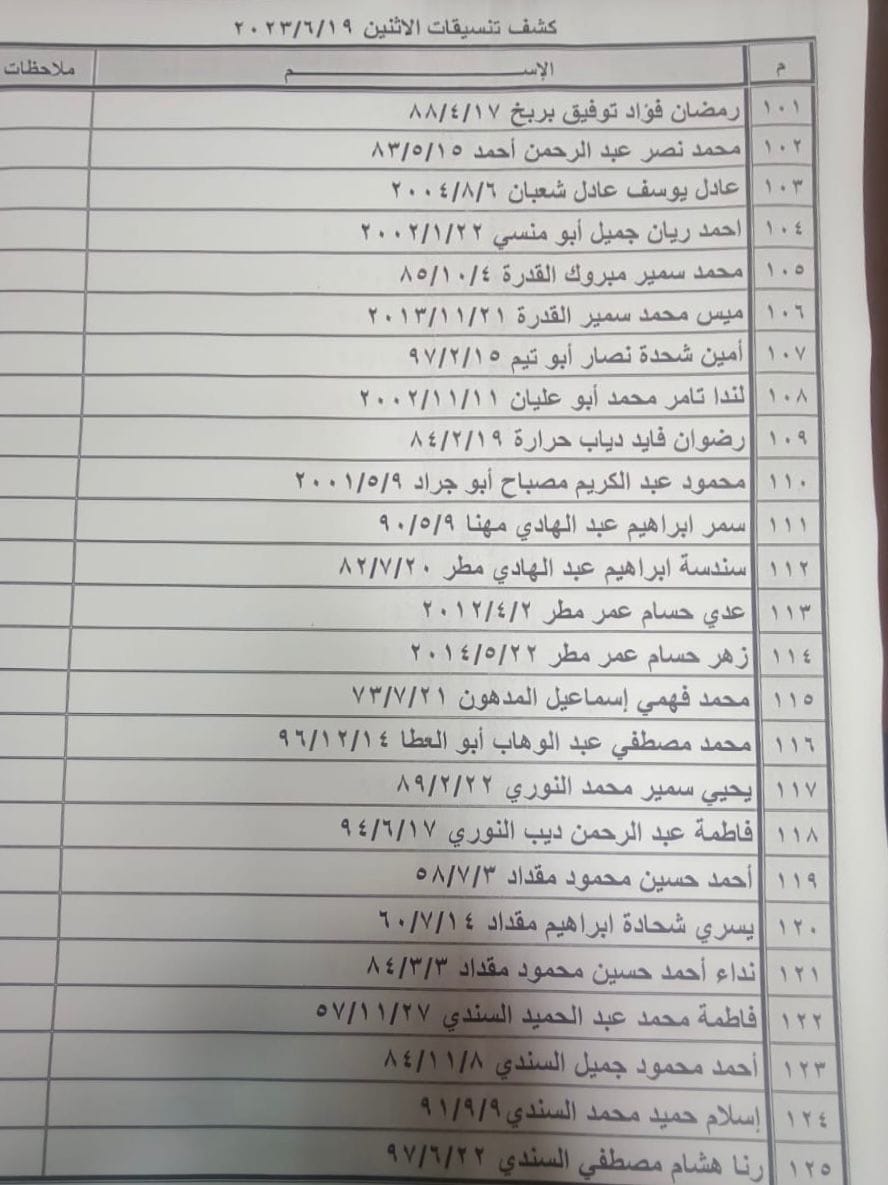 كشف تنسيقات الاثنين ٢٠٢٣/٦/١٩
م الإســـــــــم ملاحظات
١٠١ رمضان فؤاد توفيق بربخ ٨٨/٤/١٧
١٠٢ محمد نصر عبد الرحمن أحمد ٨٣/٥/١٥
١٠٣ عادل يوسف عادل شعبان ٢٠٠٤/٨/٦
١٠٤ احمد ريان جميل أبو منسي ٢٠٠٢/١/٢٢
١٠٥ محمد سمير مبروك القدرة ٨٥/١٠/٤
١٠٦ ميس محمد سمير القدرة ٢٠١٣/١١/٢١
١٠٧ أمين شحدة نصار أبو تيم ٩٧/٢/١٥
١٠٨ لندا تامر محمد أبو عليان ٢٠٠٢/١١/١١
١٠٩ رضوان فايد دياب حرارة ٨٤/٢/١٩
١١٠ محمود عبد الكريم مصباح أبو جراد ٢٠٠١/٥/٩
١١١ سمر ابراهيم عبد الهادي مهنا ٩٠/٥/٩
١١٢ سندسة ابراهيم عبد الهادي مطر ٨٢/٧/٢٠
١١٣ عدي حسام عمر مطر ٢٠١٢/٤/٢
١١٤ زهر حسام عمر مطر ٢٠١٤/٥/٢٢
١١٥ محمد فهمي إسماعيل المدهون ٧٣/٧/٢١
١١٦ محمد مصطفي عبد الوهاب أبو العطا ٩٦/١٢/١٤
١١٧ يحيي سمير محمد النوري ٨٩/٢/٢٢
١١٨ فاطمة عبد الرحمن ديب النوري ٩٤/٦/١٧
١١٩ أحمد حسين محمود مقداد ٥٨/٧/٣
١٢٠ يسري شحادة ابراهيم مقداد ٦٠/٧/١٤
١٢١ نداء أحمد حسين محمود مقداد ٨٤/٣/٣
١٢٢ فاطمة محمد عبد الحميد السندي ٥٧/١١/٢٧
١٢٣ أحمد محمود جميل السندي ٨٤/١١/٨
١٢٤ إسلام حميد محمد السندي ٩١/٩/٩
١٢٥ رنا هشام مصطفي السندي ٩٧/٦/٢٢